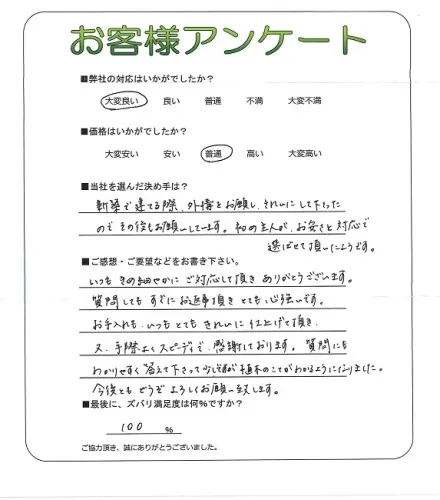 お客様アンケート
■弊社の対応はいかがでしたか？
大変良い 良い 普通 不満 大変不満
■価格はいかがでしたか？
大変安い 安い 普通 高い 大変高い
■当社を選んだ決め手は？
新築で建てる際、外構をお願いし、きれいにして下さった
のでその後もお願いしています。初め主人が、お安さと対応で
選ばせて頂いたようです。
■ご感想・ご要望などをお書き下さい。
いつもきめ細やかにご対応して頂きありがとうございます。
質問してもすぐにお返事頂きとても心強いです。
お手入れも、いつもとてもきれいに仕上げて頂き、
又、手際よくスピーディで、感謝しております。質問にも
わかりやすく答えて下さって少しずつですが植木のことがわかるようになりました。
今後ともどうぞよろしくお願い致します。
■最後に、ズバリ満足度は何%ですか？
100 %
ご協力頂き、誠にありがとうございました。